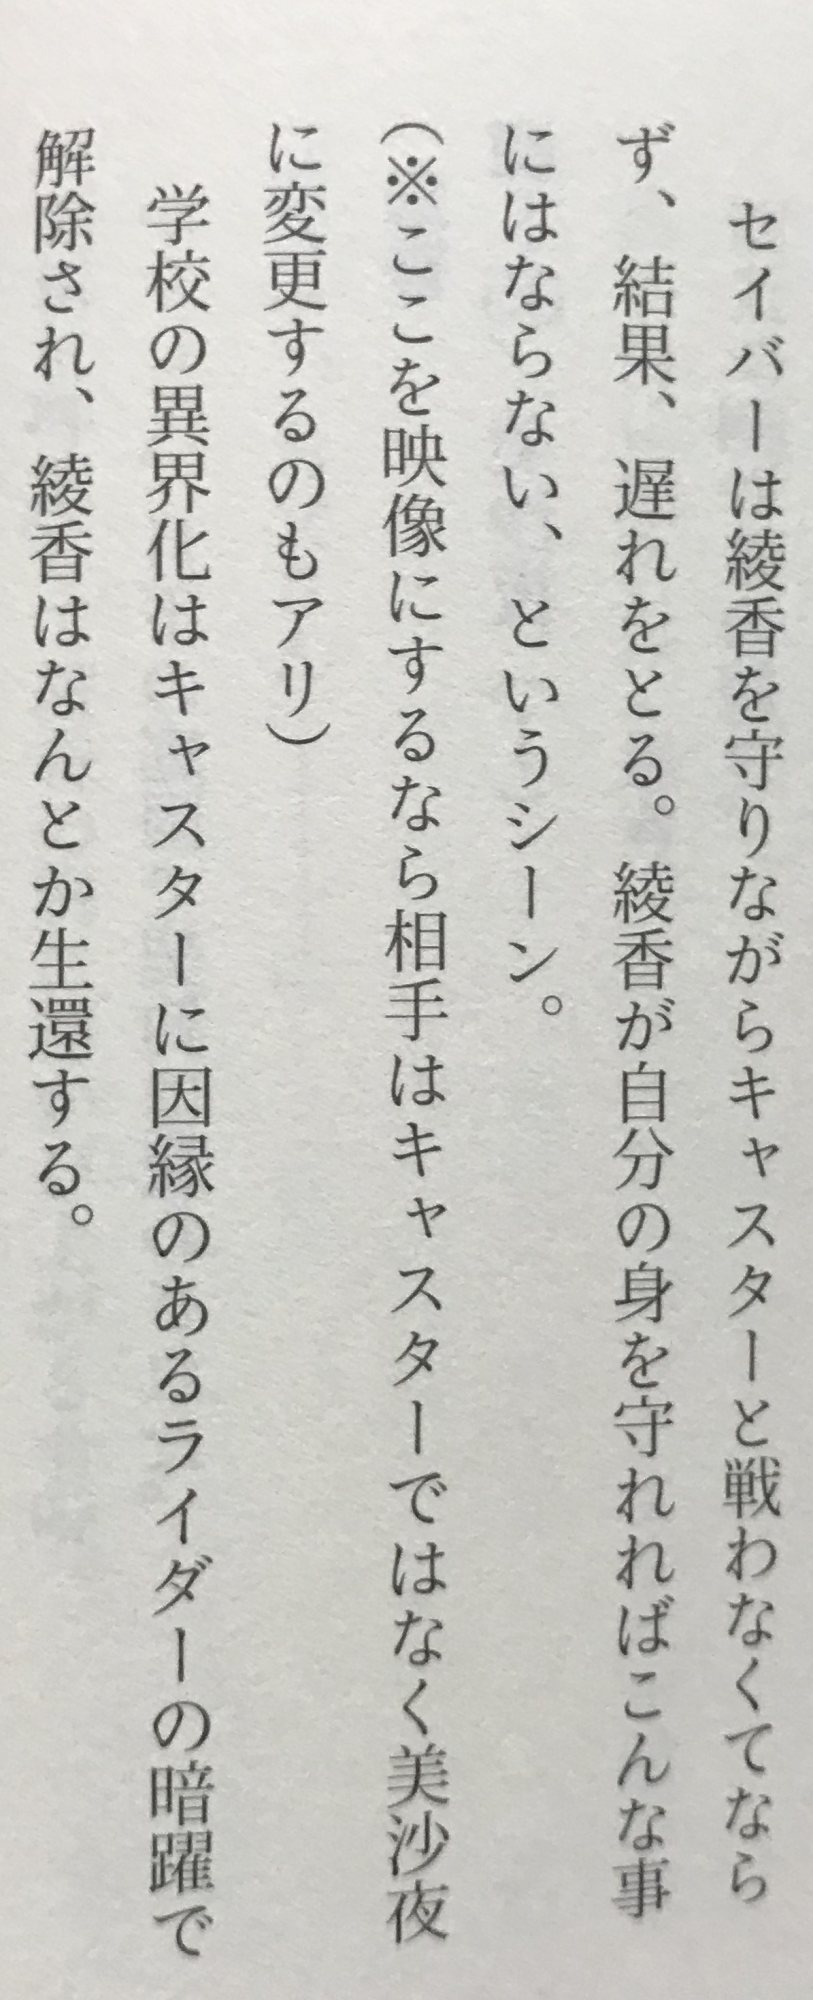 セイバーは綾香を守りながらキャスターと戦わなくてなら
ず、結果、遅れをとる。綾香が自分の身を守れればこんな事
にはならない、というシーン。
(※ここを映像にするなら相手はキャスターではなく美沙夜
に変更するのもアリ)
学校の異界化はキャスターに因縁のあるライダーの暗躍で
解除され、綾香はなんとか生還する。